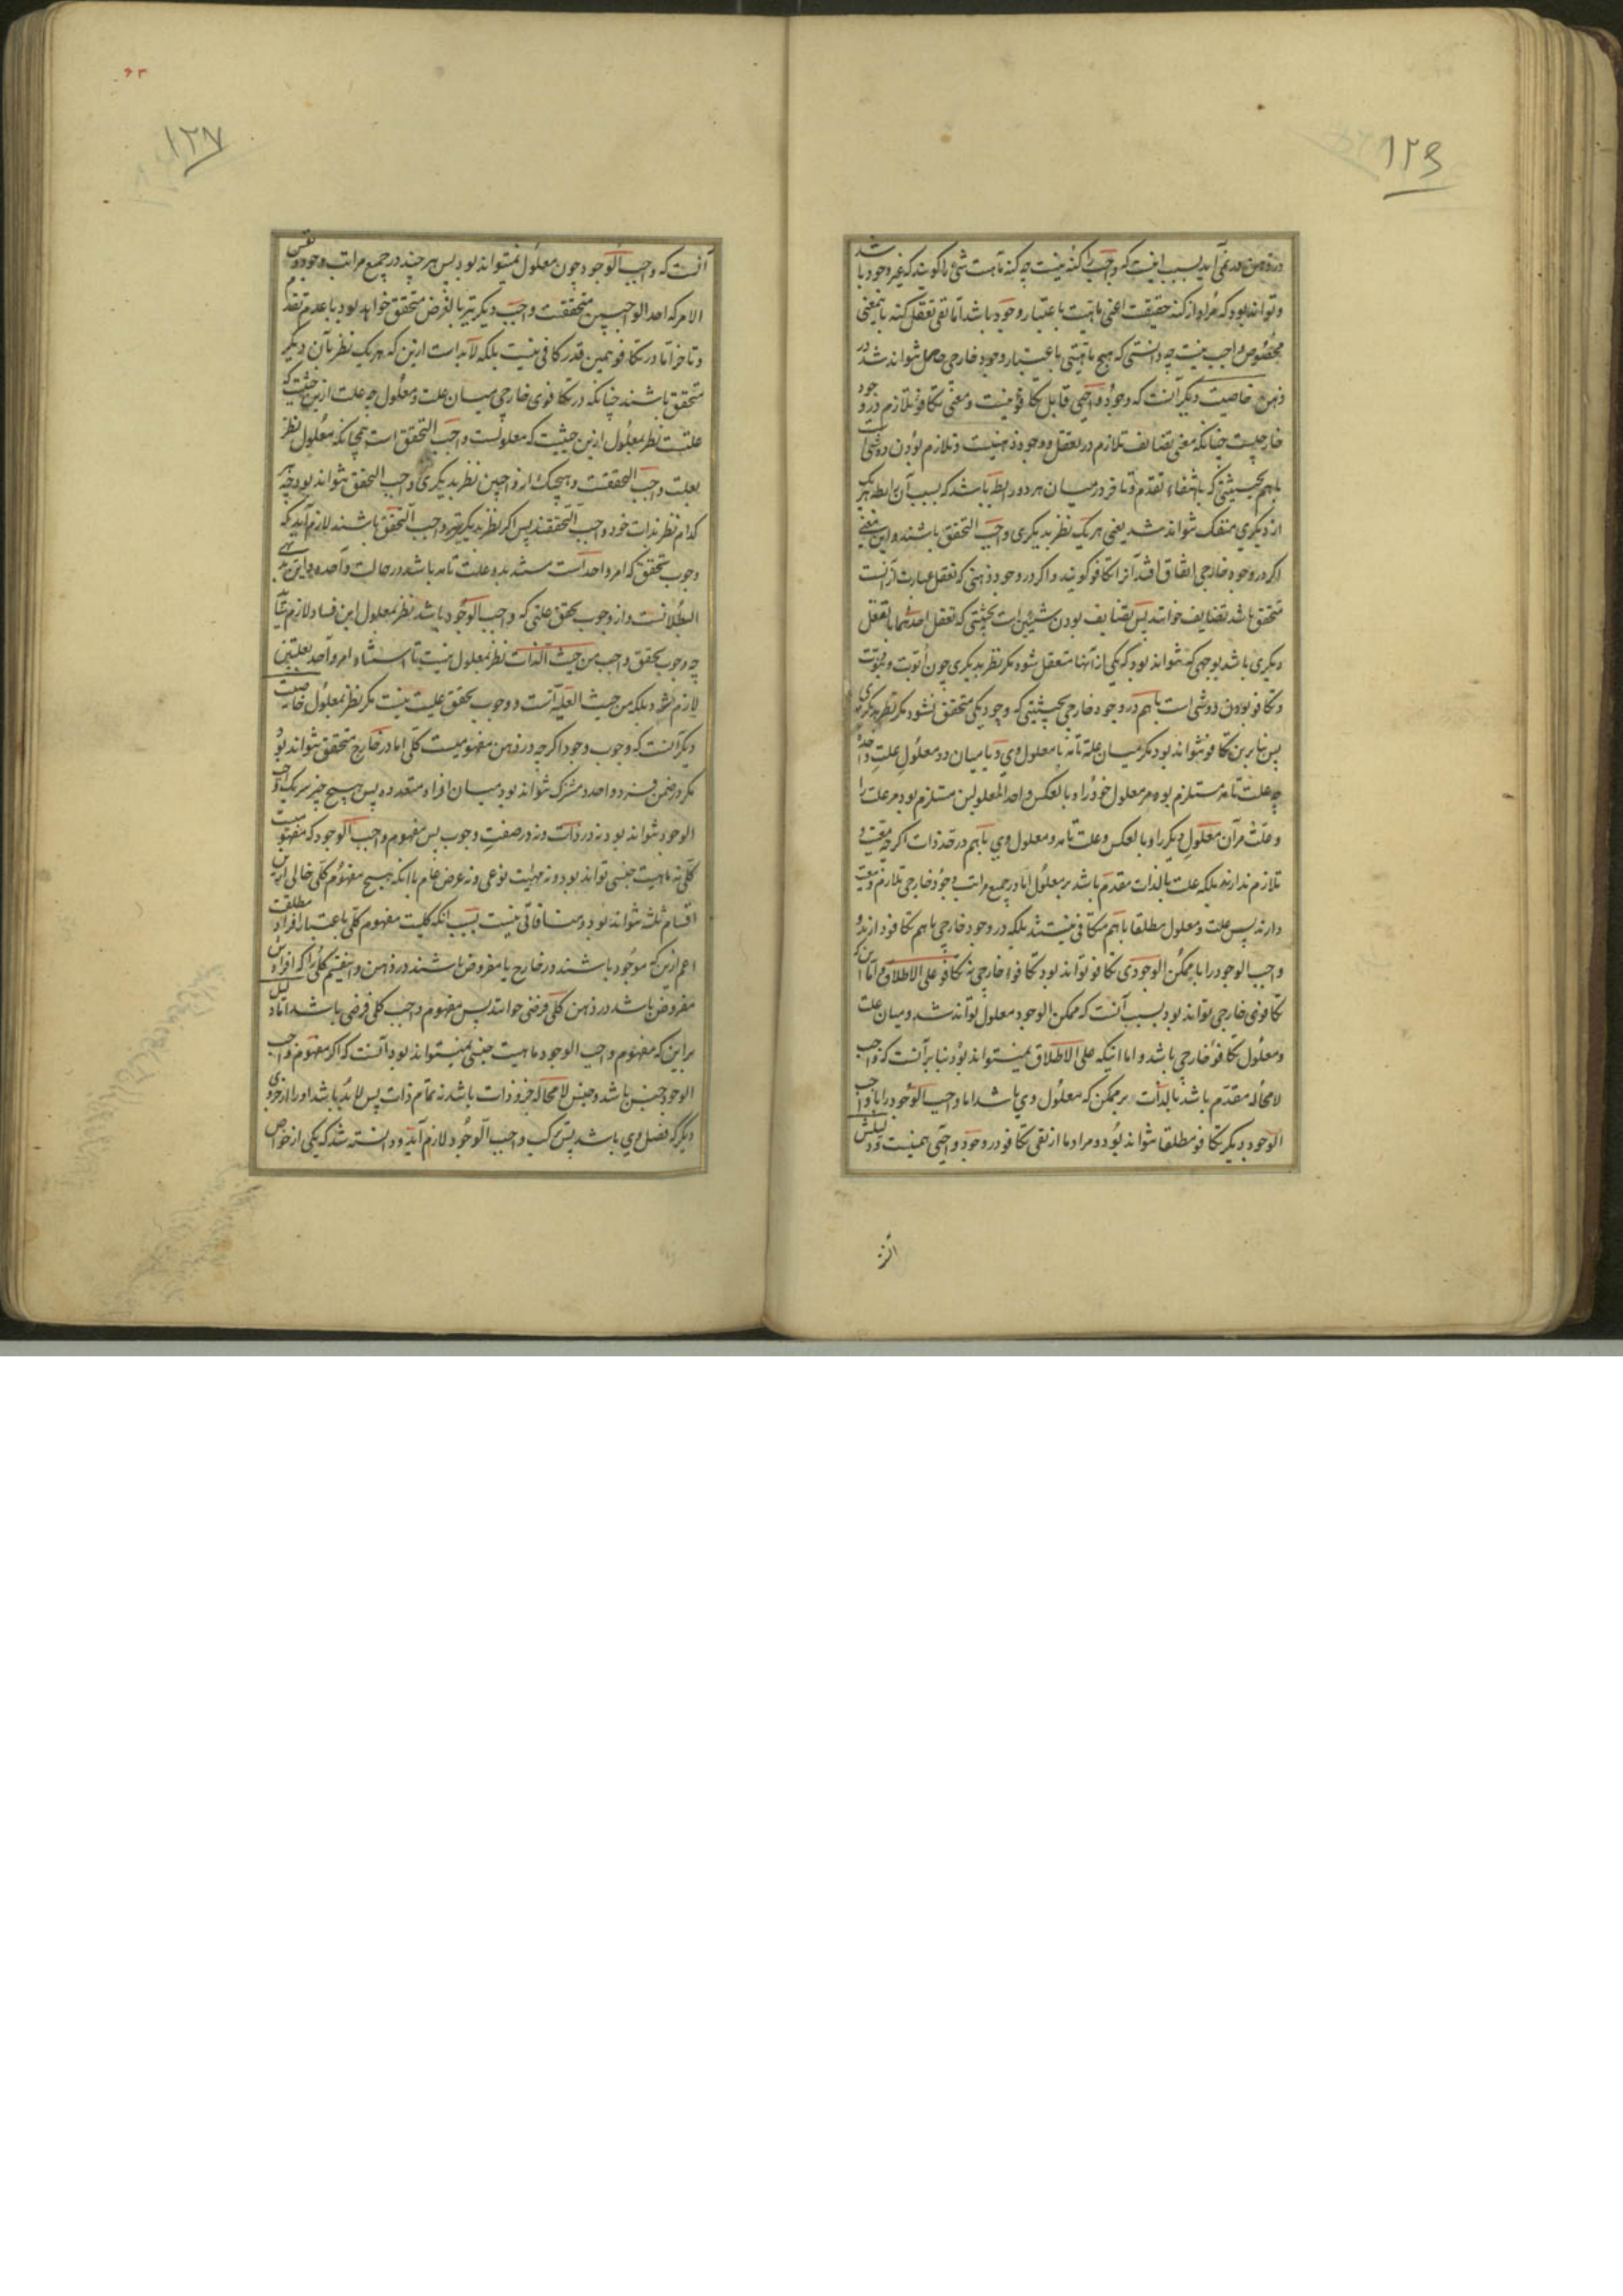 ١٢٦
در ذهن در نمی‌آید بسبب اینست که واجب را کنه نیست چه کنه ماهیت شیء را گویند که غیر وجود باشد
و تواند بود که مراد از کنه حقیقت اعنی ماهیت باعتبار وجود باشد اما نفی تعقل کنه باینمعنی
مخصوص واجب نیست چه دانستی که هیچ ماهیتی باعتبار وجود خارجی حاصل نتواند شد در
ذهن خاصیت دیگر آنست که وجود واجبی قابل تکافو نیست و معنی تکافو تلازم در وجود
خارجیست چنانکه معنی تضایف تلازم در تعقل و وجود ذهنیست و تلازم بودن دو شی است
باهم بحیثیتی که بانتفاء تقدم و تاخر در میان هر دو رابطه باشد که بسبب آن رابطه هر یک
از دیگری منفک نتواند شد یعنی هر یک نظر بدیگری واجب التحقق باشند و این معنی
اگر در وجود خارجی اتفاق افتد آنرا تکافو گویند و اگر در وجود ذهنی که تعقل عبارت از آنست
متحقق باشد تضایف خوانند پس تضایف بودن شیئین است بحیثیتی که تعقل احدهما با تعقل
دیگری باشد بوجهی که نتواند بود که یکی از آنها متعقل شود مگر نظر بدیگری چون ابوت و بنوت
و تکافو بودن دو شی است باهم در وجود خارجی بحیثیتی که وجود یکی متحقق نشود مگر نظر بدیگری
پس بنابرین تکافو نتواند بود مگر میان علة تامه با معلول وی و یا میان دو معلول علت واحده
چه علت تامه مستلزم بود مر معلول خود را و بالعکس و احد المعلولین مستلزم بود مر علت را
و علت مر آن معلول دیگر را و بالعکس و علت تامه و معلول وی باهم در حد ذات اگرچه معیت و
تلازم ندارند بلکه علت بالذات مقدم باشد بر معلول اما در جمیع مراتب وجود خارجی تلازم و معیت
دارند پس علت و معلول مطلقا باهم متکافی نیستند بلکه در وجود خارجی باهم تکافو دارند و
واجب الوجود را با ممکن الوجودی تکافو تواند بود تکافوء خارجی نه تکافو علی الاطلاق اما این که
تکافوی خارجی تواند بود بسبب آنست که ممکن الوجود معلول تواند شد و میان علت
و معلول تکافوء خارجی باشد و اما اینکه علی الاطلاق نمیتواند بود بنا بر آنست که واجب
لا محاله مقدم باشد بالذات بر ممکن که معلول وی باشد اما واجب الوجود را با واجب
الوجود دیگر تکافو مطلقا نتواند بود و مراد ما از نفی تکافو در وجود واجبی همینست و دلیلش
١٢٧
آنست که واجب الوجود چون معلول نمیتواند بود پس هر چند در جمیع مراتب وجود و نفس
الامر که احد الواجبین متحققست واجب دیگر نیز بالفرض متحقق خواهد بود با عدم تقدم
و تاخر اما در تکافو همین قدر کافی نیست بلکه لابد است ازین که هر یک نظر بآن دیگر
متحقق باشند چنانکه در تکافوی خارجی میان علت و معلول چه علت ازین حیثیت که
علتست نظر بمعلول ازین حیثیت که معلولست واجب التحقق است همچنانکه معلول نظر
بعلت واجب التحققست و هیچیک از واجبین نظر بدیگری واجب التحقق نتواند بود چه هر
کدام نظر بذات خود واجب التحققند پس اگر نظر بدیگری نیز واجب التحقق باشند لازم آید که
وجوب تحقق که امر واحد است مستند بدو علت تامه باشد در حالت واحده و این بدیهی
البطلانست و از وجوب تحقق علتی که واجب الوجود باشد نظر بمعلول این فساد لازم نیاید
چه وجوب تحقق واجب من حیث الذات نظر بمعلول نیست تا استناد امر واحد بعلتین
لازم شود بلکه من حیث العلیه است و وجوب تحقق علیت نیست مگر نظر بمعلول خاصیت
دیگر آنست که وجوب وجود اگرچه در ذهن مفهومیست کلی اما در خارج متحقق نتواند بود
مگر در ضمن فرد واحد و مشترک نتواند بود میان افراد متعدده پس هیچ چیز شریک واجب
الوجود نتواند بود نه در ذات و نه در صفت وجوب پس مفهوم واجب الوجود که مفهومیست
کلی نه ماهیت جنسی تواند بود و نه مهیت نوعی و نه عرض عام با آنکه هیچ مفهوم کلی خالی ازین
اقسام ثلثه نتواند بود و منافاتی نیست بسبب آنکه کلیت مفهوم کلی باعتبار افراد مطلقست
اعم ازین که موجود باشند در خارج یا مفروض باشند در ذهن و اینقسم کلی را که افرادش
مفروض باشد در ذهن کلی فرضی خوانند پس مفهوم واجب کلی فرضی باشد اما دلیل
براین که مفهوم واجب الوجود ماهیت جنسی نمیتواند بود آنست که اگر مفهوم واجب
الوجود جنس باشد و جنس لامحاله جزو ذات باشد نه تمام ذات پس لابد باشد او را از جزوی
دیگر که فصل وی باشد پس ترکیب واجب الوجود لازم آید و دانسته شد که یکی از خواص